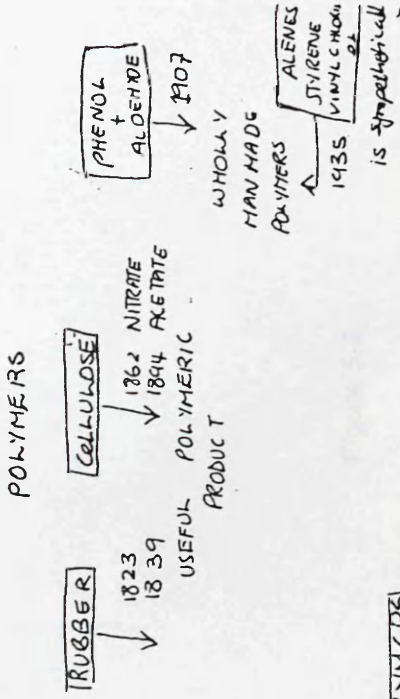 POLYMERS
RUBBER
1823
1839
CELLULOSE
1862 NITRATE
1894 ACETATE
USEFUL POLYMERIC
PRODUCT
PHENOL
+
ALDEHYDE
1907
WHOLLY
MAN MADE
POLYMERS
1935
ALENES
STYRENE
VINYL
is